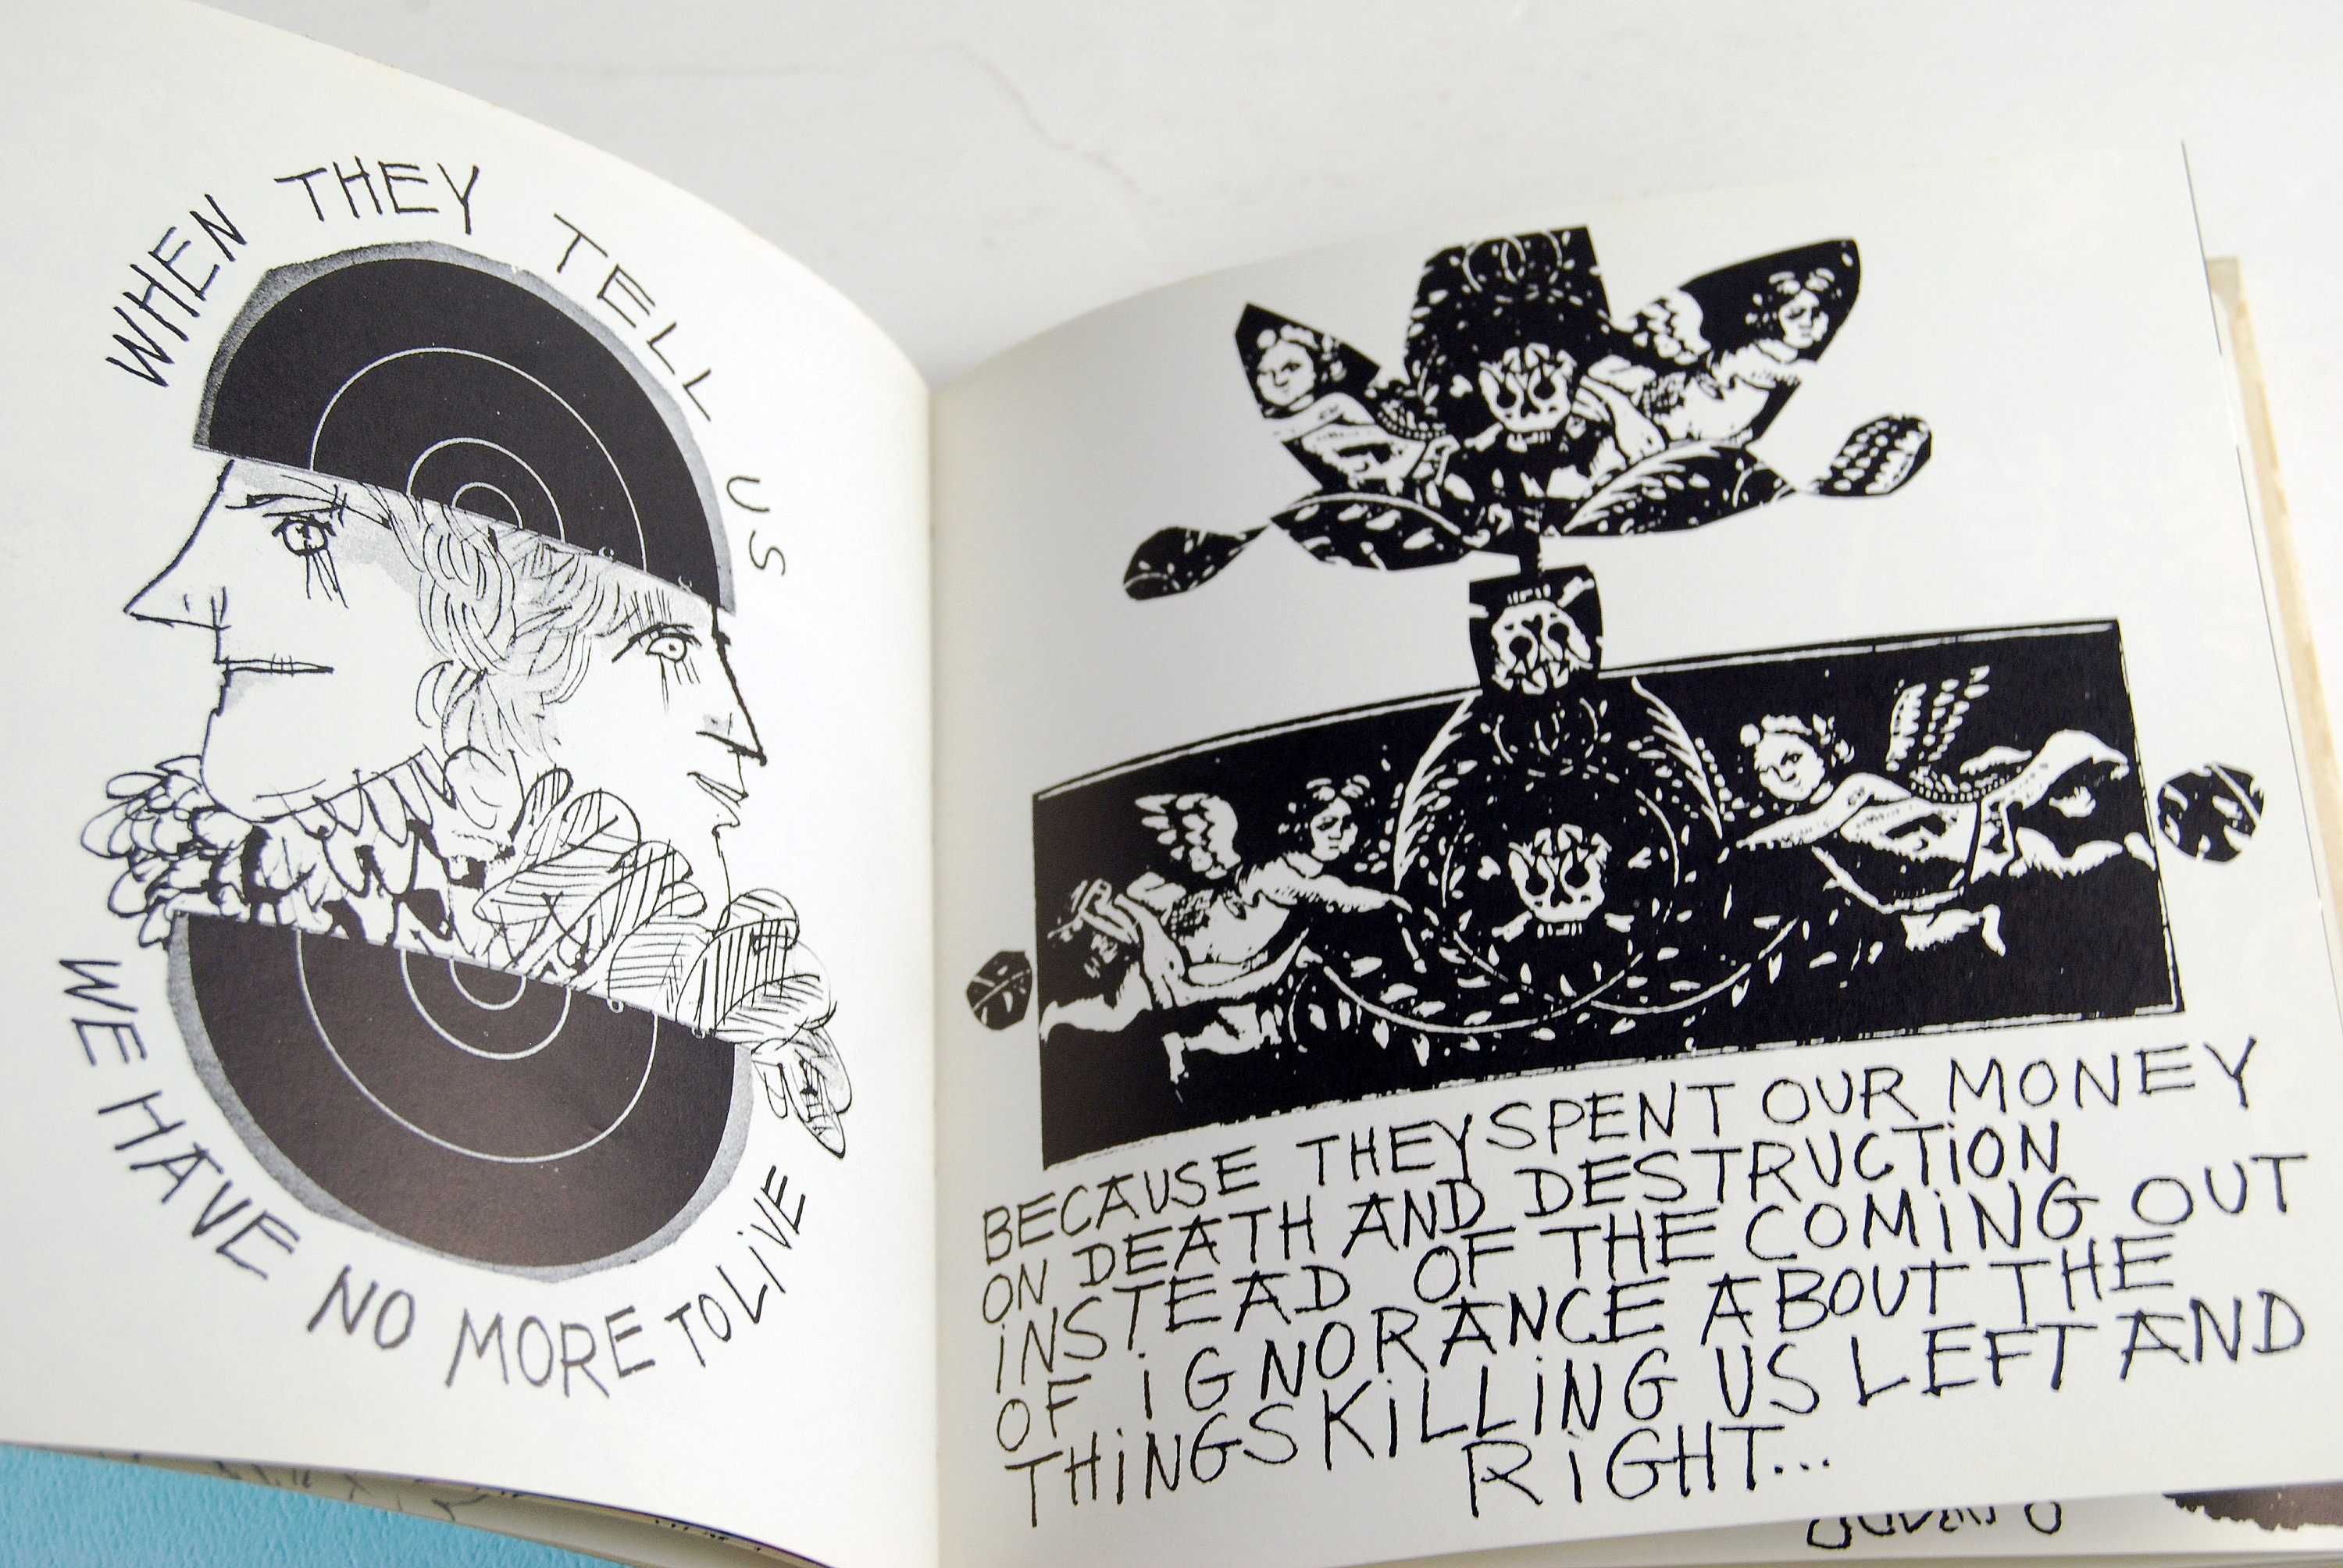 WHEN THEY TELL US
WE HAVE NO MORE TO LiVE
BECAUSE THEY SPENT OUR MONEY
ON DEATH AND DESTRUCTiON
iNSTEAD OF THE COMiNG OUT
OF iGNORANCE ABOUT THE
THiNGS KiLLiNG US LEFT AND
RiGHT...